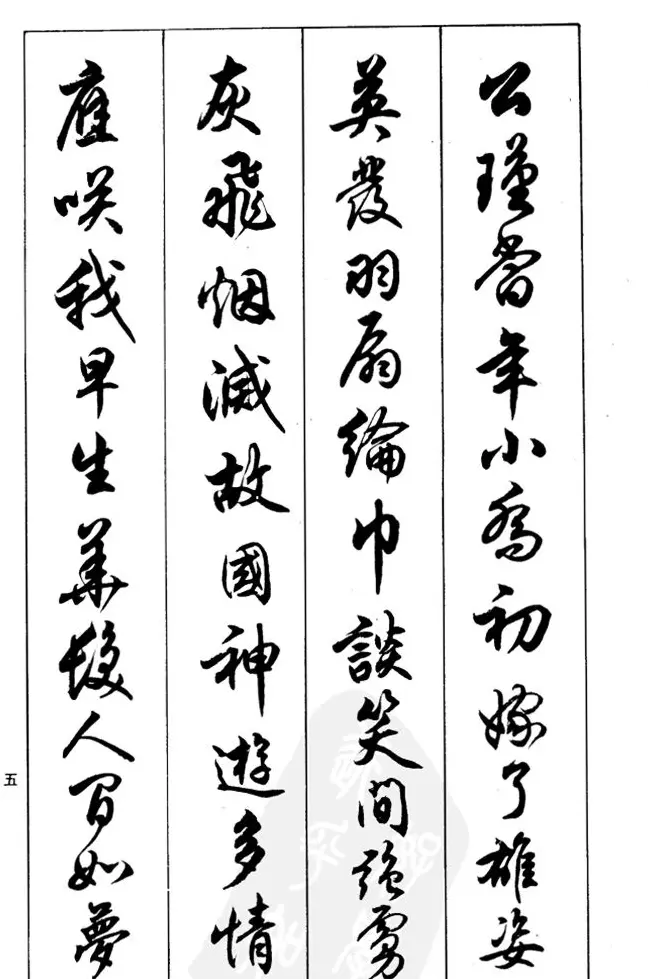 公瑾當年小喬初嫁了雄姿
英發羽扇綸巾談笑間強虜
灰飛烟滅故國神遊多情
應咲我早生華髮人間如夢
五